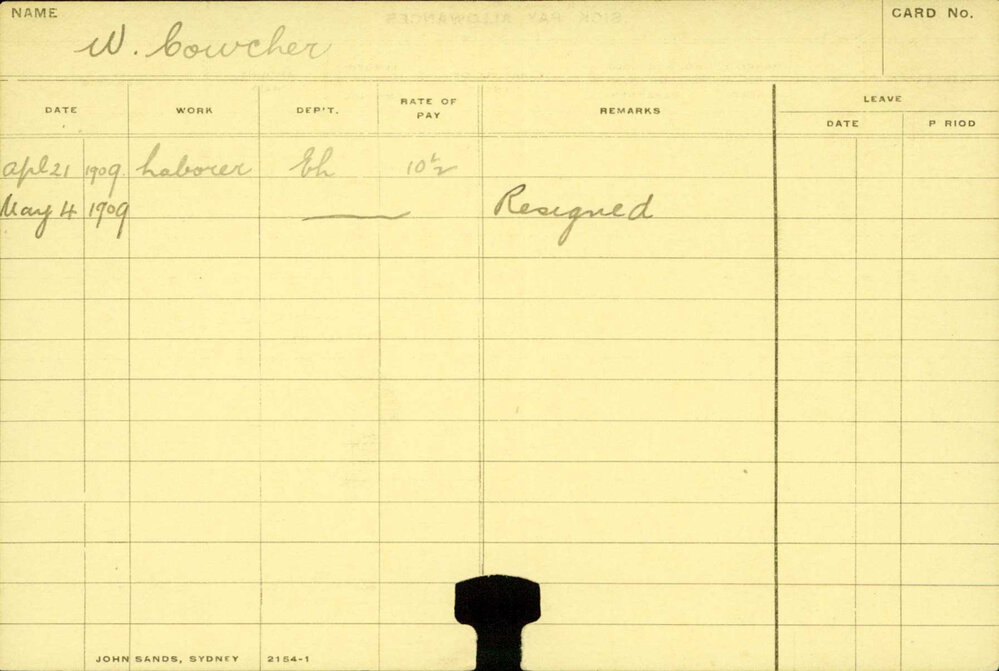 NAME
CARD No.
W. Cowcher
DATE WORK DEP'T. RATE OF PAY REMARKS LEAVE
DATE P RIOD
Apl 21 1909. Laborer Eh
May 4 1909 Resigned
JOHN SANDS, SYDNEY 2154-1